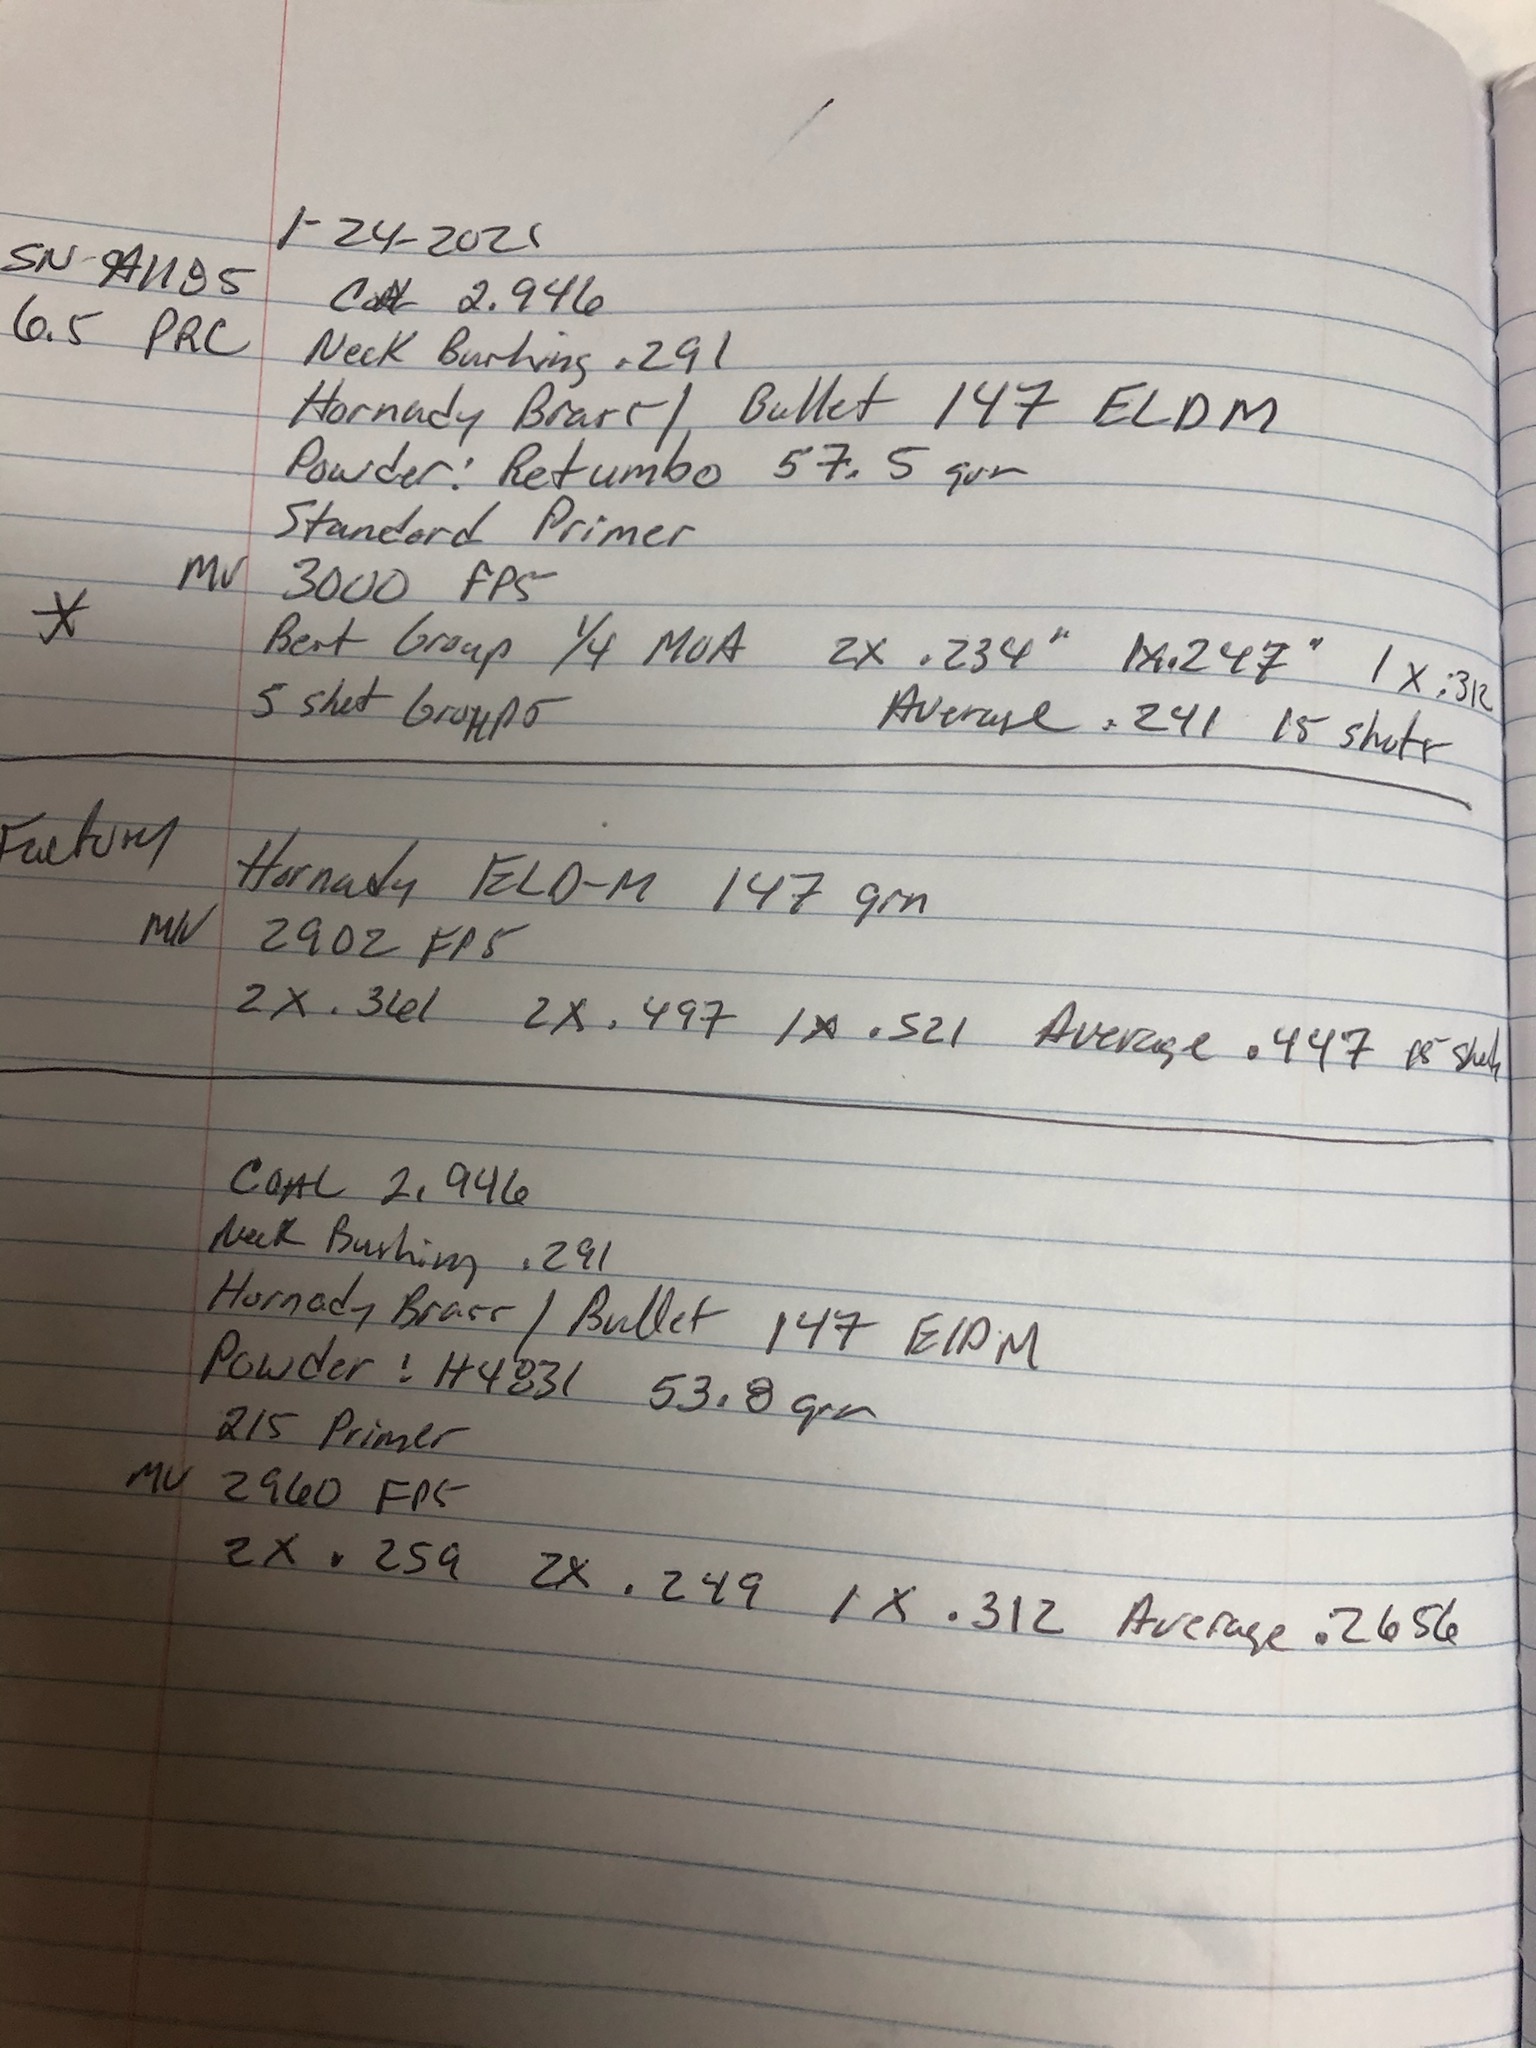 1-24-2021
SN-A1195
COAL 2.946
6.5 PRC
Neck Bushing .291
Hornady Brass / Bullet 147 ELDM
Powder: Retumbo 57.5 grn
Standard Primer
MV 3000 FPS
* Best Group 1/4 MOA 2X .234" 1x.247" 1 X .312
5 shot Groups Average .241 15 shots
Factory Hornady ELD-M 147 grn
MV 2902 FPS
2X .361 2X .497 1x .521 Average .447 15 shots
COAL 2.946
Neck Bushing .291
Hornady Brass / Bullet 147 ElDM
Powder: H4831 53.8 grn
215 Primer
MV 2960 FPS
2X .259 2X .249 1X .312 Average .2656